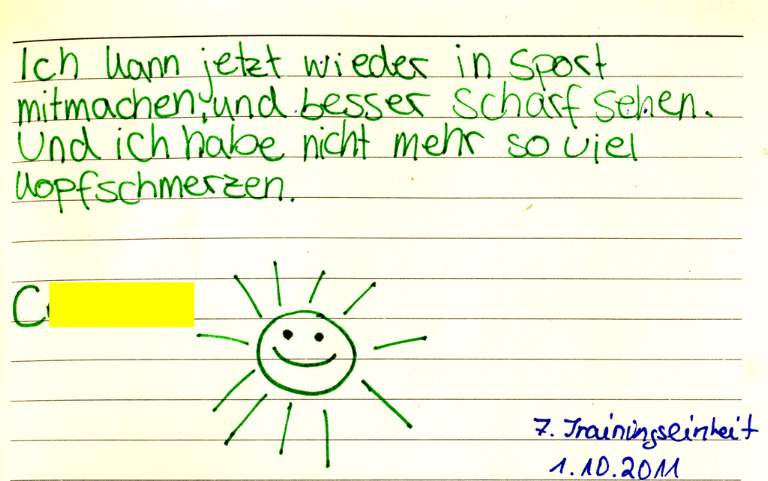 Ich kann jetzt wieder in Sport
mitmachen, und besser scharf sehen.
Und ich habe nicht mehr so viel
Kopfschmerzen.
C
7. Trainingseinheit
1.10.2011